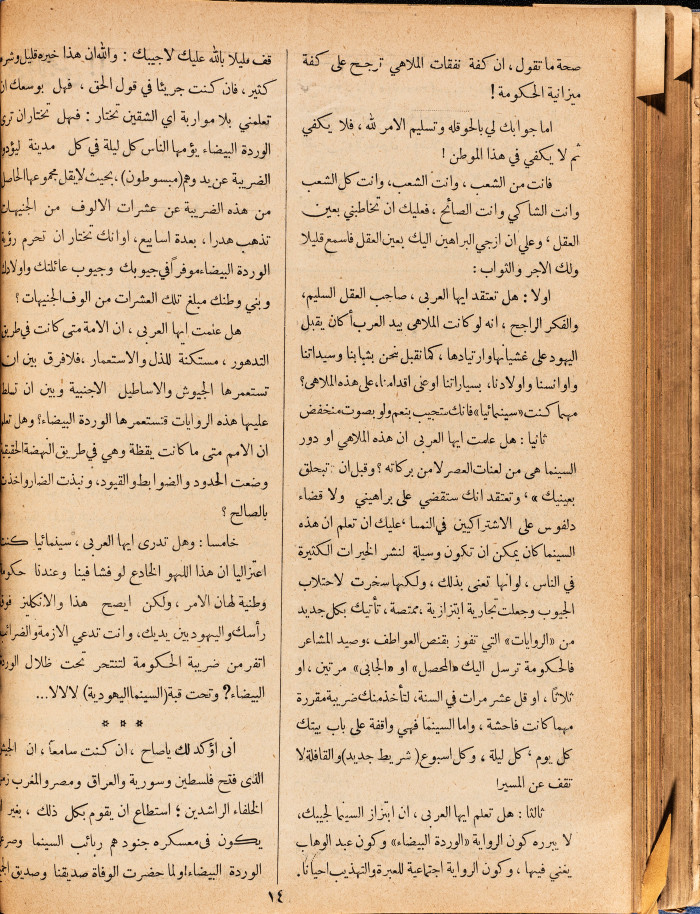 صحة ما تقول ، ان كفة نفقات الملاهي ترجح على كفة
ميزانية الحكومة !
اما جوابك لي بالحوقله وتسليم الامر لله ، فلا يكفي
ثم لا يكفي في هذا الموطن !
فانت من الشعب ، وانت الشعب، وانت كل الشعب
وانت الشاكي وانت الصائح ، فعليك ان تخاطبني بعين
العقل ، وعلي ان ازجي البراهين اليك بعين العقل فاسمع قليلا
ولك الاجر والثواب :
اولا : هل تعتقد ايها العربى ، صاحب العقل السليم،
والفكر الراجح ، انه لو كانت الملاهى بيد العرب أكان يقبل
اليهود على غشيانها وارتيادها ، كما نقبل نحن بشبابنا وسيداتنا
واوانسنا واولادنا، بسياراتنا او على اقدامنا، على هذه الملاهى؟
مهما كنت «سينمائيا» فانك ستجيب بنعم ولو بصوت منخفض
ثانيا : هل علمت ايها العربى ان هذه الملاهي او دور
السينما هى من لعنات العصر لا من بركاته ؟ وقبل ان تبحلق
بعينيك » ، وتعتقد انك ستقضي على براهيني ولا قضاء
دلفوس على الاشتراكيين في النمسا ، عليك ان تعلم ان هذه
السينما كان يمكن ان تكون وسيلة لنشر الخيرات الكثيرة
في الناس ، لو انها تعنى بذلك ، ولكنها سخرت لاحتلاب
الجيوب وجعلت تجارية ابتزازية ، ممتصة ، تأتيك بكل جديد
من «الروايات» التي تفوز بقنص العواطف ، وصيد المشاعر
فالحكومة ترسل اليك «المحصل» او «الجابى» مرتين ، او
ثلاثا ، او قل عشر مرات في السنة، لتأخذ منك ضريبة مقررة
مهما كانت فاحشة ، واما السينما فهي واقفة على باب بيتك
كل يوم ، كل ليلة ، وكل اسبوع ( شريط جديد) والقافلة لا
تقف عن المسير!
ثالثا : هل تعلم ايها العربى ، ان ابتزاز السينما لجيبك،
لا يبرره كون الرواية «الوردة البيضاء» وكون عبد الوهاب
يغني فيها ، وكون الرواية اجتماعية للعبرة والتهذيب احيانا.
قف قليلا بالله عليك لاجيبك : والله ان هذا خيره قليل وشره
كثير ، فان كنت جريئا في قول الحق ، فهل بوسعك ان
تعلمني بلا مواربة اي الشقين تختار : فهل تختار ان ترى
الوردة البيضاء يؤمها الناس كل ليلة في كل مدينة ليؤدوا
الضريبة عن يد وهم (مبسوطون) ، بحيث لا يقل مجموعها الحاصل
من هذه الضريبة عن عشرات الالوف من الجنيهات
تذهب هدرا ، بعدة اسابيع، او انك تختار ان تحرم رؤية
الوردة البيضاء موفراً في جيوبك وجيوب عائلتك واولادك
وبني وطنك مبلغ تلك العشرات من الوف الجنيهات ؟
هل علمت ايها العربى ، ان الامة متى كانت في طريق
التدهور ، مستكنة للذل والاستعمار ، فلا فرق بين ان
تستعمرها الجيوش والاساطيل الاجنبية وبين ان تسلط
عليها هذه الروايات فتستعمرها الوردة البيضاء؟ وهل تعلم
ان الامم متى ما كانت يقظة وهي في طريق النهضة الحقيقية
وضعت الحدود والضوابط والقيود، ونبذت الضار واخذت
بالصالح ؟
خامسا : وهل تدرى ايها العربى ، سينمائيا كنت
اعتزاليا ان هذا اللهو الخادع لو فشا فينا وعندنا حكومة
وطنية لهان الامر ، ولكن ايصح هذا والانكليز فوق
رأسك واليهود بين يديك، وانت تدعي الازمة والضرائب
اتفر من ضريبة الحكومة لتنتحر تحت ظلال الوردة
البيضاء؟ وتحت قبة (السينما اليهودية) لا لا لا...
* * *
انى اؤكد لك ياصاح ، ان كنت سامعاً ، ان الجيش
الذى فتح فلسطين وسورية والعراق ومصر والمغرب زمن
الخلفاء الراشدين ؛ استطاع ان يقوم بكل ذلك ، بغير ان
يكون في معسكره جنود هم ربائب السينما وصرعى
الوردة البيضاء او لما حضرت الوفاة صديقنا وصديق
١٤